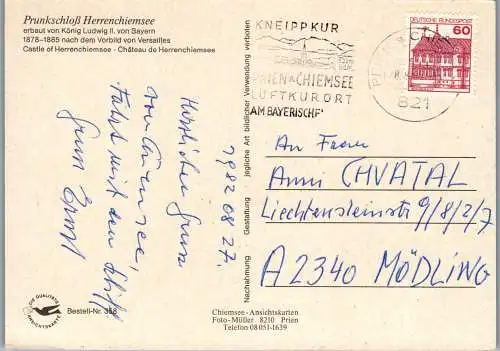 Prunkschloß Herrenchiemsee
erbaut von König Ludwig II. von Bayern
1878-1885 nach dem Vorbild von Versailles
Castle of Herrenchiemsee · Château de Herrenchiemsee
KNEIPPKUR
PRIEN A. CHIEMSEE
LUFTKURORT
AM BAYERISCHE
821
DEUTSCHE BUNDESPOST
60
1982 08 27.
Herzlichen Gruss
vom Chiemsee,
Fahrt mit dem Schiff
Gruss Ernst
An Frau
Anni CHVATAL
Liechtensteinstr 9/8/2/7
A 2340 MÖDLING
Nachahmung · Gestaltung · jegliche Art bildlicher Verwendung verboten
DIE QUALITÄTS
ANSICHTSKARTE
Bestell-Nr. 358
Chiemsee-Ansichtskarten
Foto-Müller 8210 Prien
Telefon 08051-1639